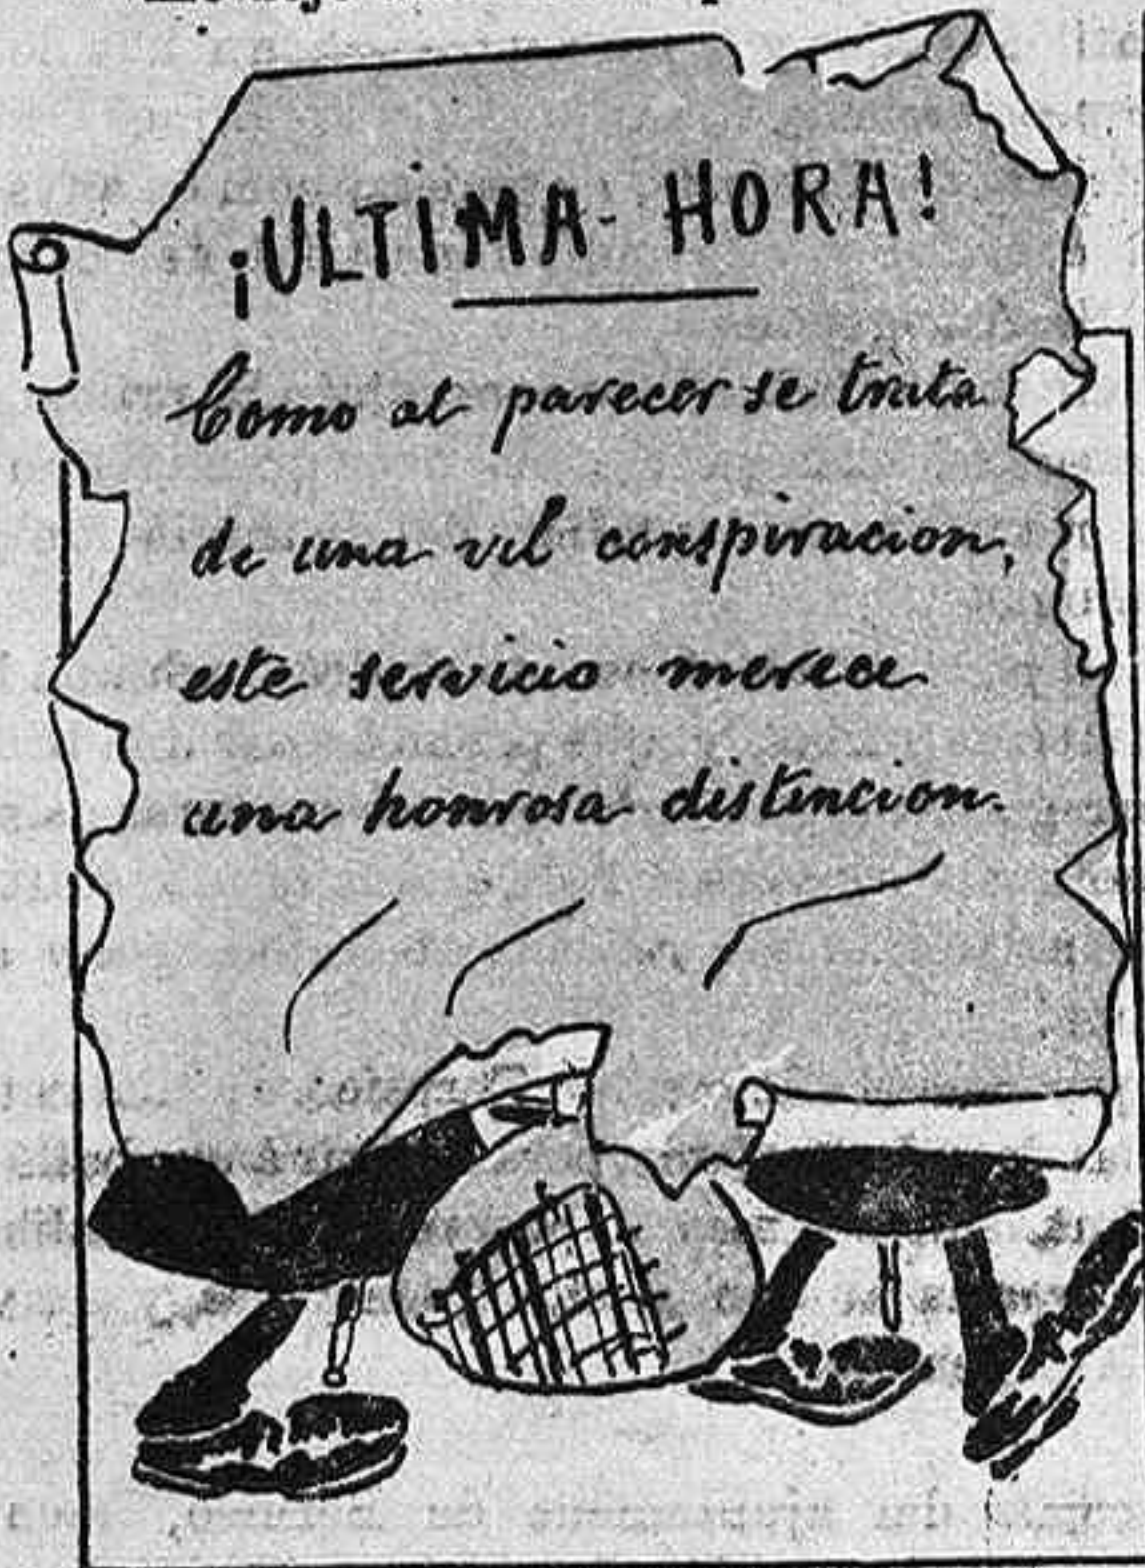 ¡ULTIMA HORA!
Como al parecer se trata
de una vil conspiracion,
este servicio merece
una honrosa distincion.